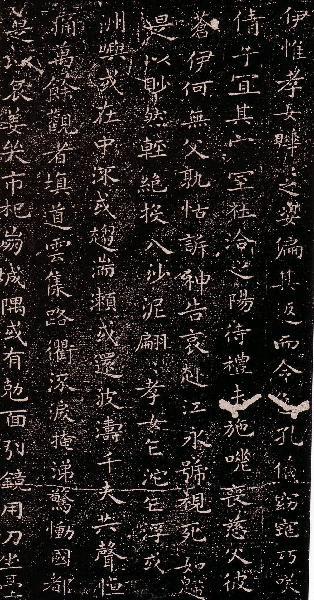 伊惟孝女曄〻之姿偏其返而令色孔儀窈窕巧笑
倩兮宜其家室在洽之陽待禮未施嗟喪慈父彼
蒼伊何無父孰怙訴神告哀赴江永號視死如歸
是以眇然輕絕投入沙泥翩〻孝女乍沉乍浮或
洲嶼或在中流或趨湍瀨或還波濤千夫失聲悼
痛萬餘觀者填道雲集路衢流淚掩涕驚慟國都
是以哀姜哭市杞崩城隅或有剋面引鏡用刀坐臺